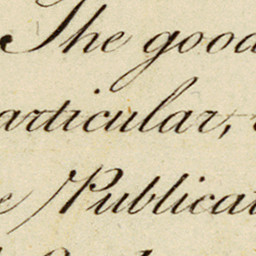 The good
articular,
e Publicat